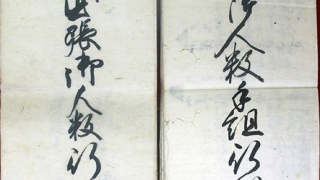 御人数手組行
出張御人数行